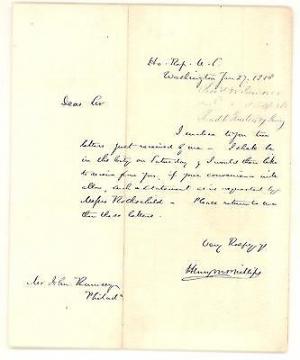 Ho. Rep. U.S.
Washington Jan 27, 18
Dear Sir
I enclose to you two
letters just received of me – I shall be
in the City on Saturday & I would then like
to receive from you, if your convenience will
allow, such a statement as is requested by
Messrs Rothschild – Please return to me
then these letters.
Very Respy yr
Henry M Phillips
Mr. John
Philad